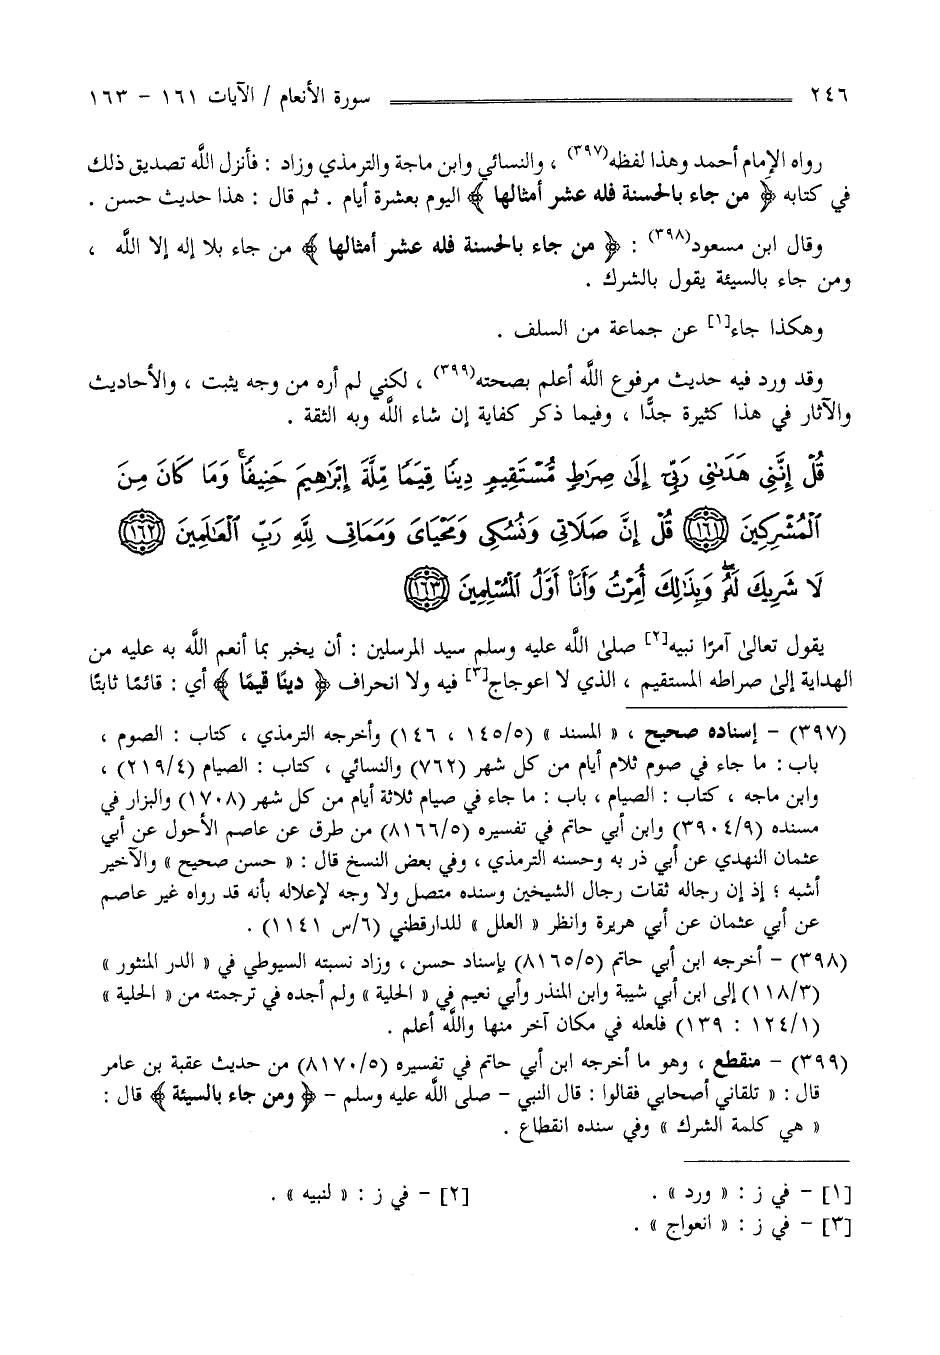 ٢٤٦ سورة الأنعام / الآيات ١٦١ - ١٦٣
رواه الإمام أحمد وهذا لفظه(٣٩٧) ، والنسائي وابن ماجة والترمذي وزاد : فأنزل اللَّه تصديق ذلك
في كتابه ﴿ من جاء بالحسنة فله عشر أمثالها ﴾ اليوم بعشرة أيام . ثم قال : هذا حديث حسن .
وقال ابن مسعود(٣٩٨) : ﴿ من جاء بالحسنة فله عشر أمثالها ﴾ من جاء بلا إله إلا اللَّه ،
ومن جاء بالسيئة يقول بالشرك .
وهكذا جاء[١] عن جماعة من السلف .
وقد ورد فيه حديث مرفوع اللَّه أعلم بصحته(٣٩٩) ، لكني لم أره من وجه يثبت ، والأحاديث
والآثار في هذا كثيرة جدًّا ، وفيما ذكر كفاية إن شاء اللَّه وبه الثقة .
قُلْ إِنَّنِي هَدَىٰنِي رَبِّيٓ إِلَىٰ صِرَٰطٍ مُّسْتَقِيمٍ دِينًا قِيَمًا مِّلَّةَ إِبْرَٰهِيمَ حَنِيفًا ۚ وَمَا كَانَ مِنَ
ٱلْمُشْرِكِينَ ﴿١٦١﴾ قُلْ إِنَّ صَلَاتِي وَنُسُكِي وَمَحْيَايَ وَمَمَاتِي لِلَّهِ رَبِّ ٱلْعَٰلَمِينَ ﴿١٦٢﴾
لَا شَرِيكَ لَهُۥ ۖ وَبِذَٰلِكَ أُمِرْتُ وَأَنَا۠ أَوَّلُ ٱلْمُسْلِمِينَ ﴿١٦٣﴾
يقول تعالى آمرًا نبيه[٢] صلى اللَّه عليه وسلم سيد المرسلين : أن يخبر بما أنعم اللَّه به عليه من
الهداية إلى صراطه المستقيم ، الذي لا اعوجاج[٣] فيه ولا انحراف ﴿ دينًا قيمًا ﴾ أي : قائمًا ثابتًا
(٣٩٧) - إسناده صحيح ، « المسند » (١٤٥/٥ ، ١٤٦) وأخرجه الترمذي ، كتاب : الصوم ،
باب : ما جاء في صوم ثلام أيام من كل شهر (٧٦٢) والنسائي ، كتاب : الصيام (٢١٩/٤) ،
وابن ماجه ، كتاب : الصيام ، باب : ما جاء في صيام ثلاثة أيام من كل شهر (١٧٠٨) والبزار في
مسنده (٣٩٠٤/٩) وابن أبي حاتم في تفسيره (٨١٦٦/٥) من طرق عن عاصم الأحول عن أبي
عثمان النهدي عن أبي ذر به وحسنه الترمذي ، وفي بعض النسخ قال : « حسن صحيح » والأخير
أشبه ؛ إذ إن رجاله ثقات رجال الشيخين وسنده متصل ولا وجه لإعلاله بأنه قد رواه غير عاصم
عن أبي عثمان عن أبي هريرة وانظر « العلل » للدارقطني (٦/س ١١٤١) .
(٣٩٨) - أخرجه ابن أبي حاتم (٨١٦٥/٥) بإسناد حسن ، وزاد نسبته السيوطي في « الدر المنثور »
(١١٨/٣) إلى ابن أبي شيبة وابن المنذر وأبي نعيم في « الحلية » ولم أجده في ترجمته من « الحلية »
(١٢٤/١ : ١٣٩) فلعله في مكان آخر منها واللَّه أعلم .
(٣٩٩) - منقطع ، وهو ما أخرجه ابن أبي حاتم في تفسيره (٨١٧٠/٥) من حديث عقبة بن عامر
قال : « تلقاني أصحابي فقالوا : قال النبي - صلى اللَّه عليه وسلم - ﴿ ومن جاء بالسيئة ﴾ قال :
« هي كلمة الشرك » وفي سنده انقطاع .
[١] - في ز : « ورد » . [٢] - في ز : « لنبيه » .
[٣] - في ز : « انعواج » .